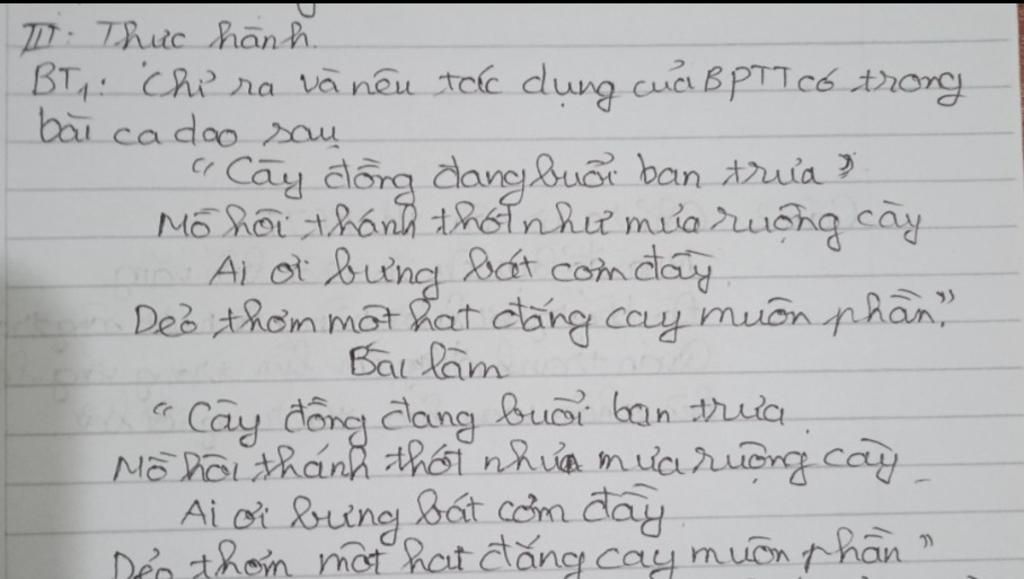 III: Thực hành.
BT1: Chỉ ra và nêu tác dụng của BPTT có trong
bài ca dao sau
"Cày đồng đang buổi ban trưa"
Mồ hôi thánh thót như mưa ruộng cày
Ai ơi bưng bát cơm đầy
Dẻo thơm một hạt đắng cay muôn phần."
Bài làm
"Cày đồng đang buổi ban trưa
Mồ hôi thánh thót như mưa ruộng cày
Ai ơi bưng bát cơm đầy
Dẻo thơm một hạt đắng cay muôn phần"